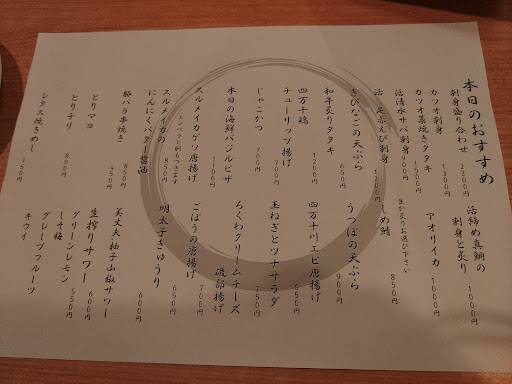 本日のおすすめ
刺身盛り合わせ 2200円
カツオ刺身 1300円
カツオ藁焼きタタキ 1500円
活清水サバ刺身 900円
活 足赤えび刺身 1200円
きびなごの天ぷら 650円
和牛炙りタタキ 1200円
四万十鶏
チューリップ揚げ 700円
じゃこかつ 700円
本日の海鮮バジルピザ 1100円
スルメイカゲソ唐揚げ
スルメイカの
にんにくバター醤油 850円
豚バラ串焼き 650円
とりマヨ 450円
とりチリ 800円
レタス焼きめし 750円
活〆真鯛の
刺身と炙り 1000円
アオリイカ 1000円
生か炙りお選び下さい
しめ鯖 850円
うつぼの天ぷら 900円
四万十川エビ唐揚げ 650円
玉ねぎとツナサラダ 750円
ろくわクリームチーズ
磯部揚げ
ごぼうの唐揚げ 700円
明太子きゅうり 650円
美丈夫柚子山椒サワー 600円
生搾りサワー 600円
グリーンレモン 550円
しそ梅
グレープフルーツ
キウイ